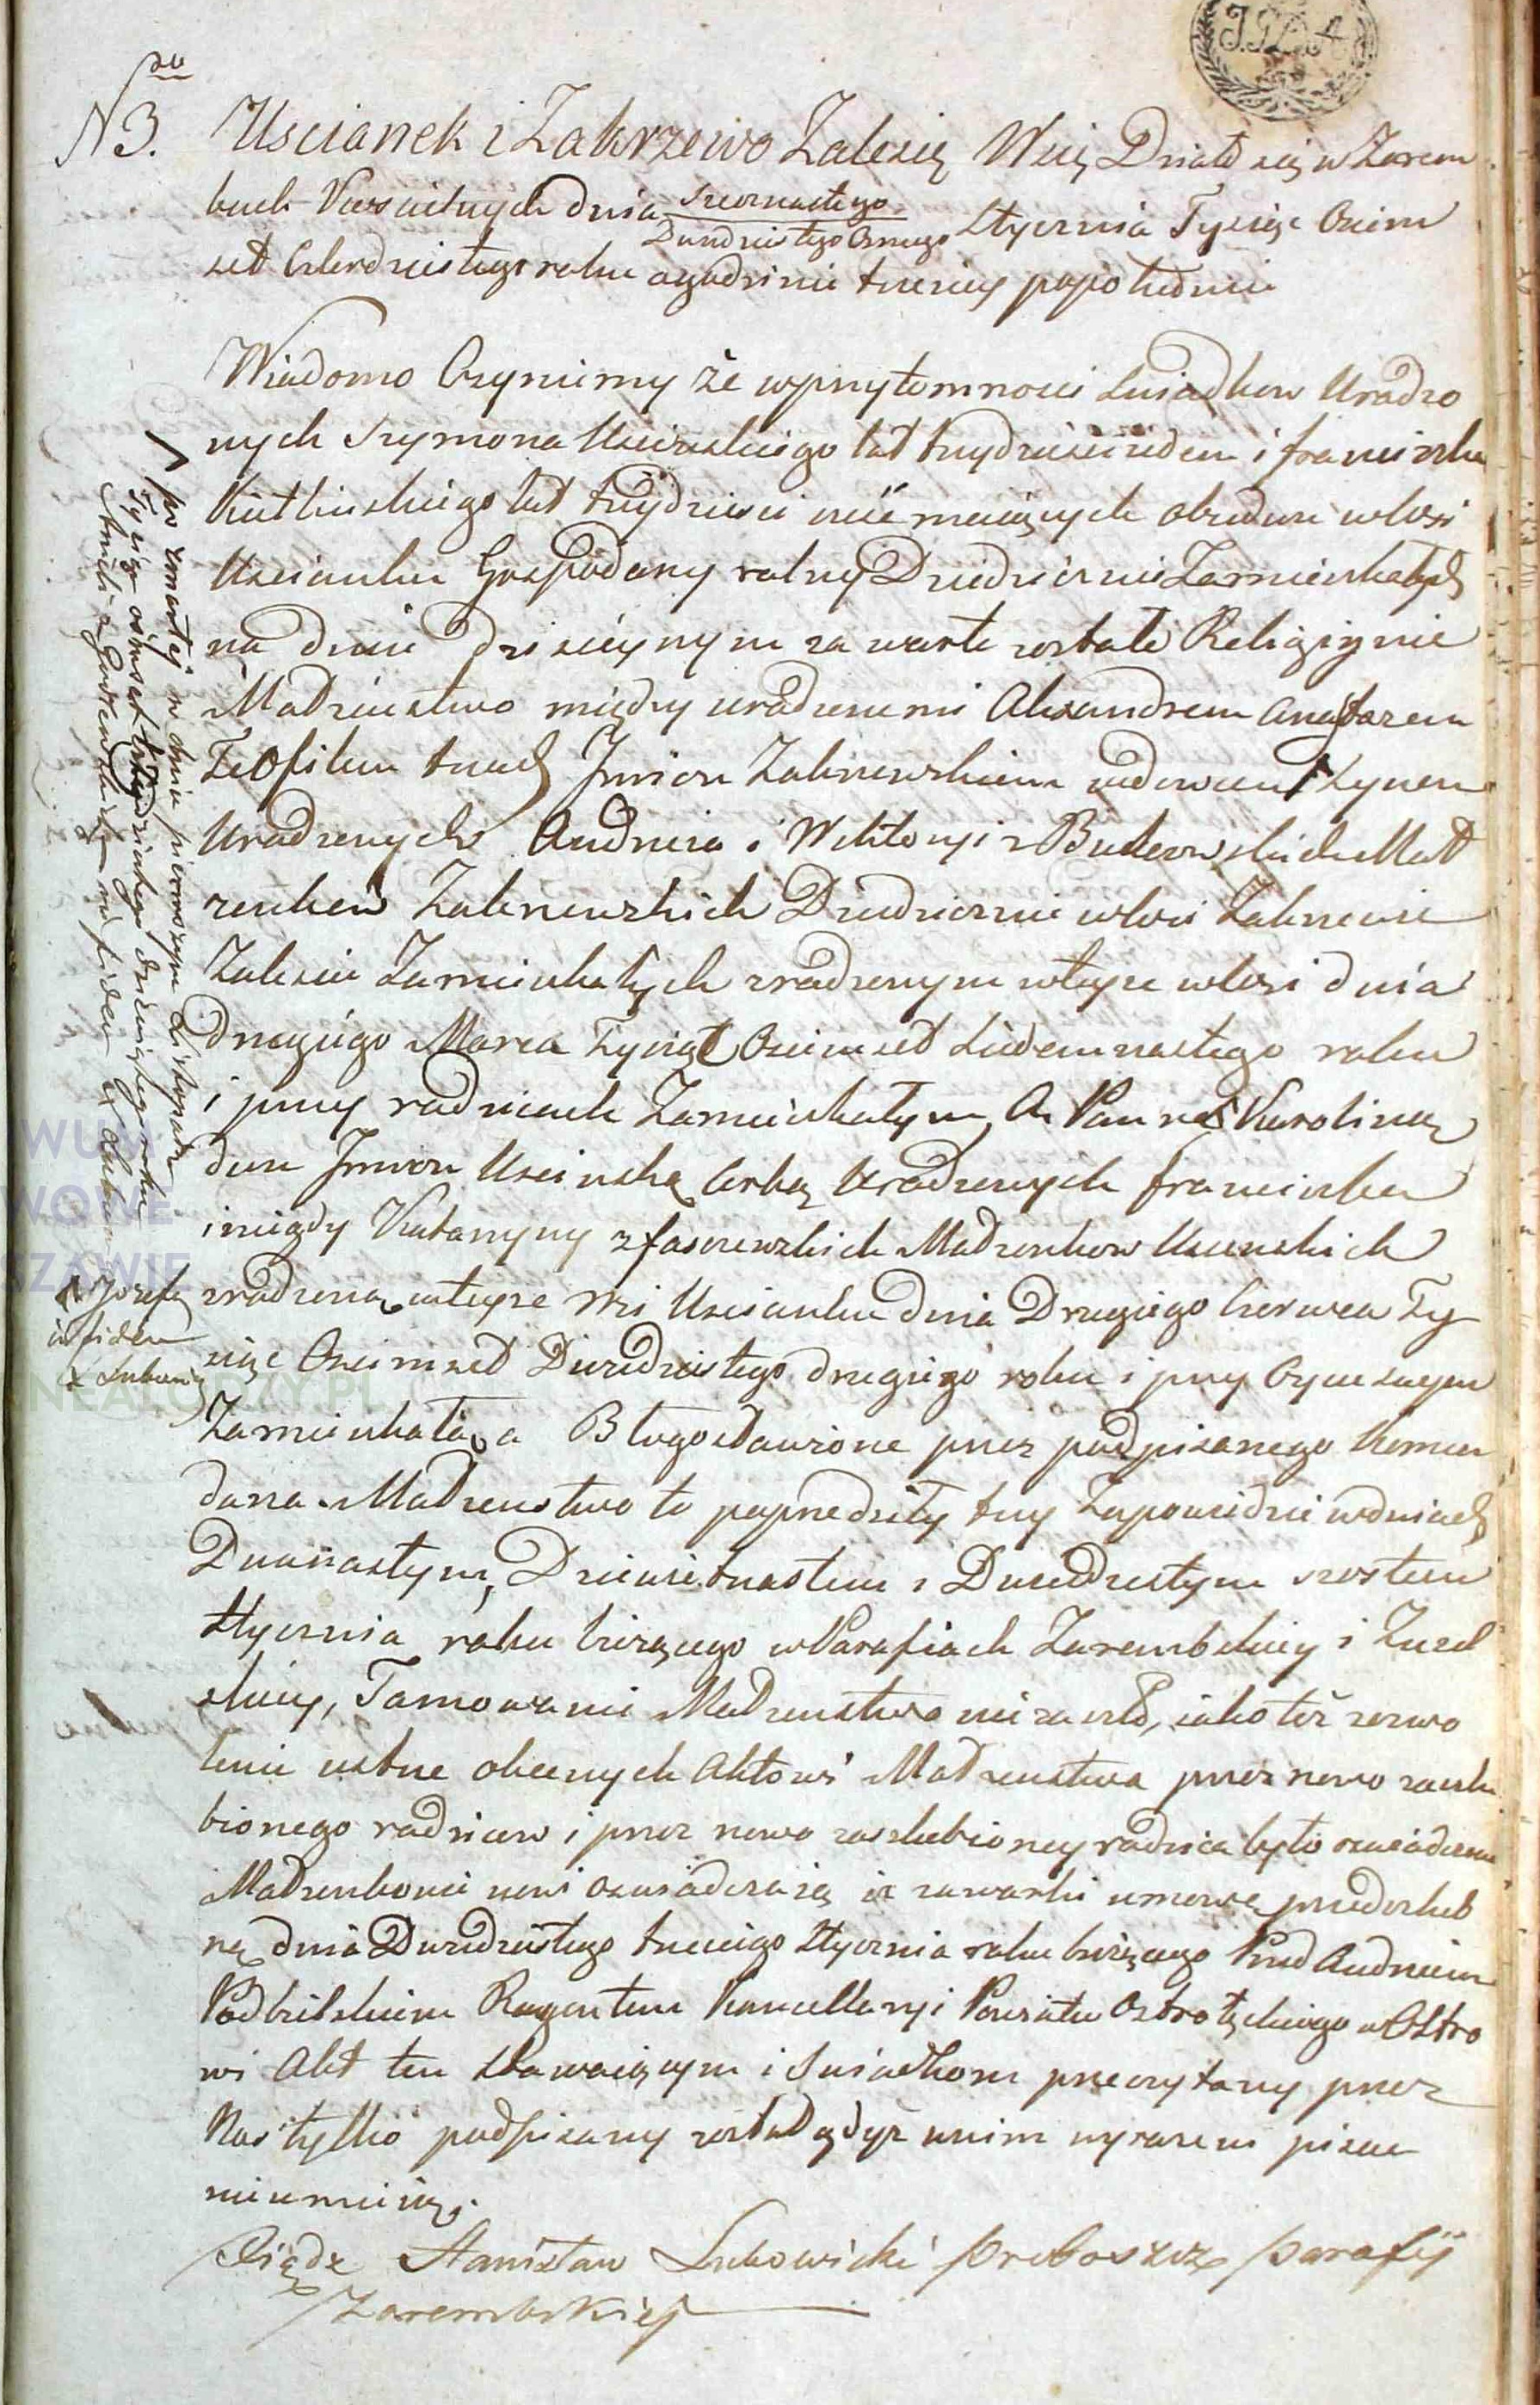 N 3.
Uscianek i Zakrzewo Zalesie Wsię Działo się w Zarem
bach Kościelnych dnia szesnastego Stycznia Tysiąc Osim
Dwudziestego Osmego
set Czterdziestego roku o godzinie trzeciey popołudniu
Wiadomo Czyniemy że w przytomnosci Swiadkow Urodzo
nych Szymona Uscinskiego lat trzydziesci ieden i franciszka
lat trzydziesci maiących obudwu w wsi
Uscianku Gospodarzy rolnych Dziedzicznie Zamieszkałych
na dniu dzisieyszym zawarte zostało Religiynie
Małzenstwo między urodzonemi Alexandrem Anastazem
Teofilem trzech Jmion Zakrzewskiem wdowcem Synem
Urodzonych Andrzeia i Wiktoryi z Mał
zonkow Zakrzewskich Dziedzicznie w wsi Zakrzewie
Zalesiu Zamieszkałych zrodzonym w teyze wsi dnia
drugiego Marca Tysiąc Osimset Siedemnastego roku
i przy rodzicach Zamieszkałym, A Panną Karoliną
dwu Jmion Uscinską Corką Urodzonych franciszka
i niegdy Katarzyny z Małzonkow Uscinskich
zrodzoną w teyze Wsi Uscianku dnia Drugiego Czerwca Ty
siąc Osimset Dwudziestego drugiego roku i przy Oycu swym
Zamieszkałą, a Błogosławione przez podpisanego Komen
darza. Małzenstwo to poprzedziły trzy Zapowiedzi w dniach
Dwunastym, Dziewietnastem i Dwudziestym szostem
Stycznia roku biezącego w Parafiach Zarembskiey i Zuzel
skiey, Tamowanie Małzenstwa nie zaszło, iako też zezwo
lenie ustne obecnych Aktowi Małzenstwa przez nowo zaslu
bionego rodzicow i przez nowo zaslubioney rodzica było oswiadczone
Małzonkowie nowi oswiadczaią iz zawarli umowę przedslub
ną dnia Dwudziestego trzeciego Stycznia roku biezącego Przed Andrzeiem
Podbielskiem Regentem Kancellaryi Powiatu Ostrołęckiego w Ostro
wi Akt ten stawaiącym i Swiadkom przeczytany przez
Nas tylko podpisany został gdyz w nim wyrazeni pisac
nieumieią.
Xiądz Stanisław Lubowicki Proboszcz Parafij
Zarembskiej
po zmarłej w dniu pierwszym Listopada
Tysiąc osmset trzydziestego dziewiątego roku
in fidem X Lubowicki
Jozefą
in fidem
X Lubowic